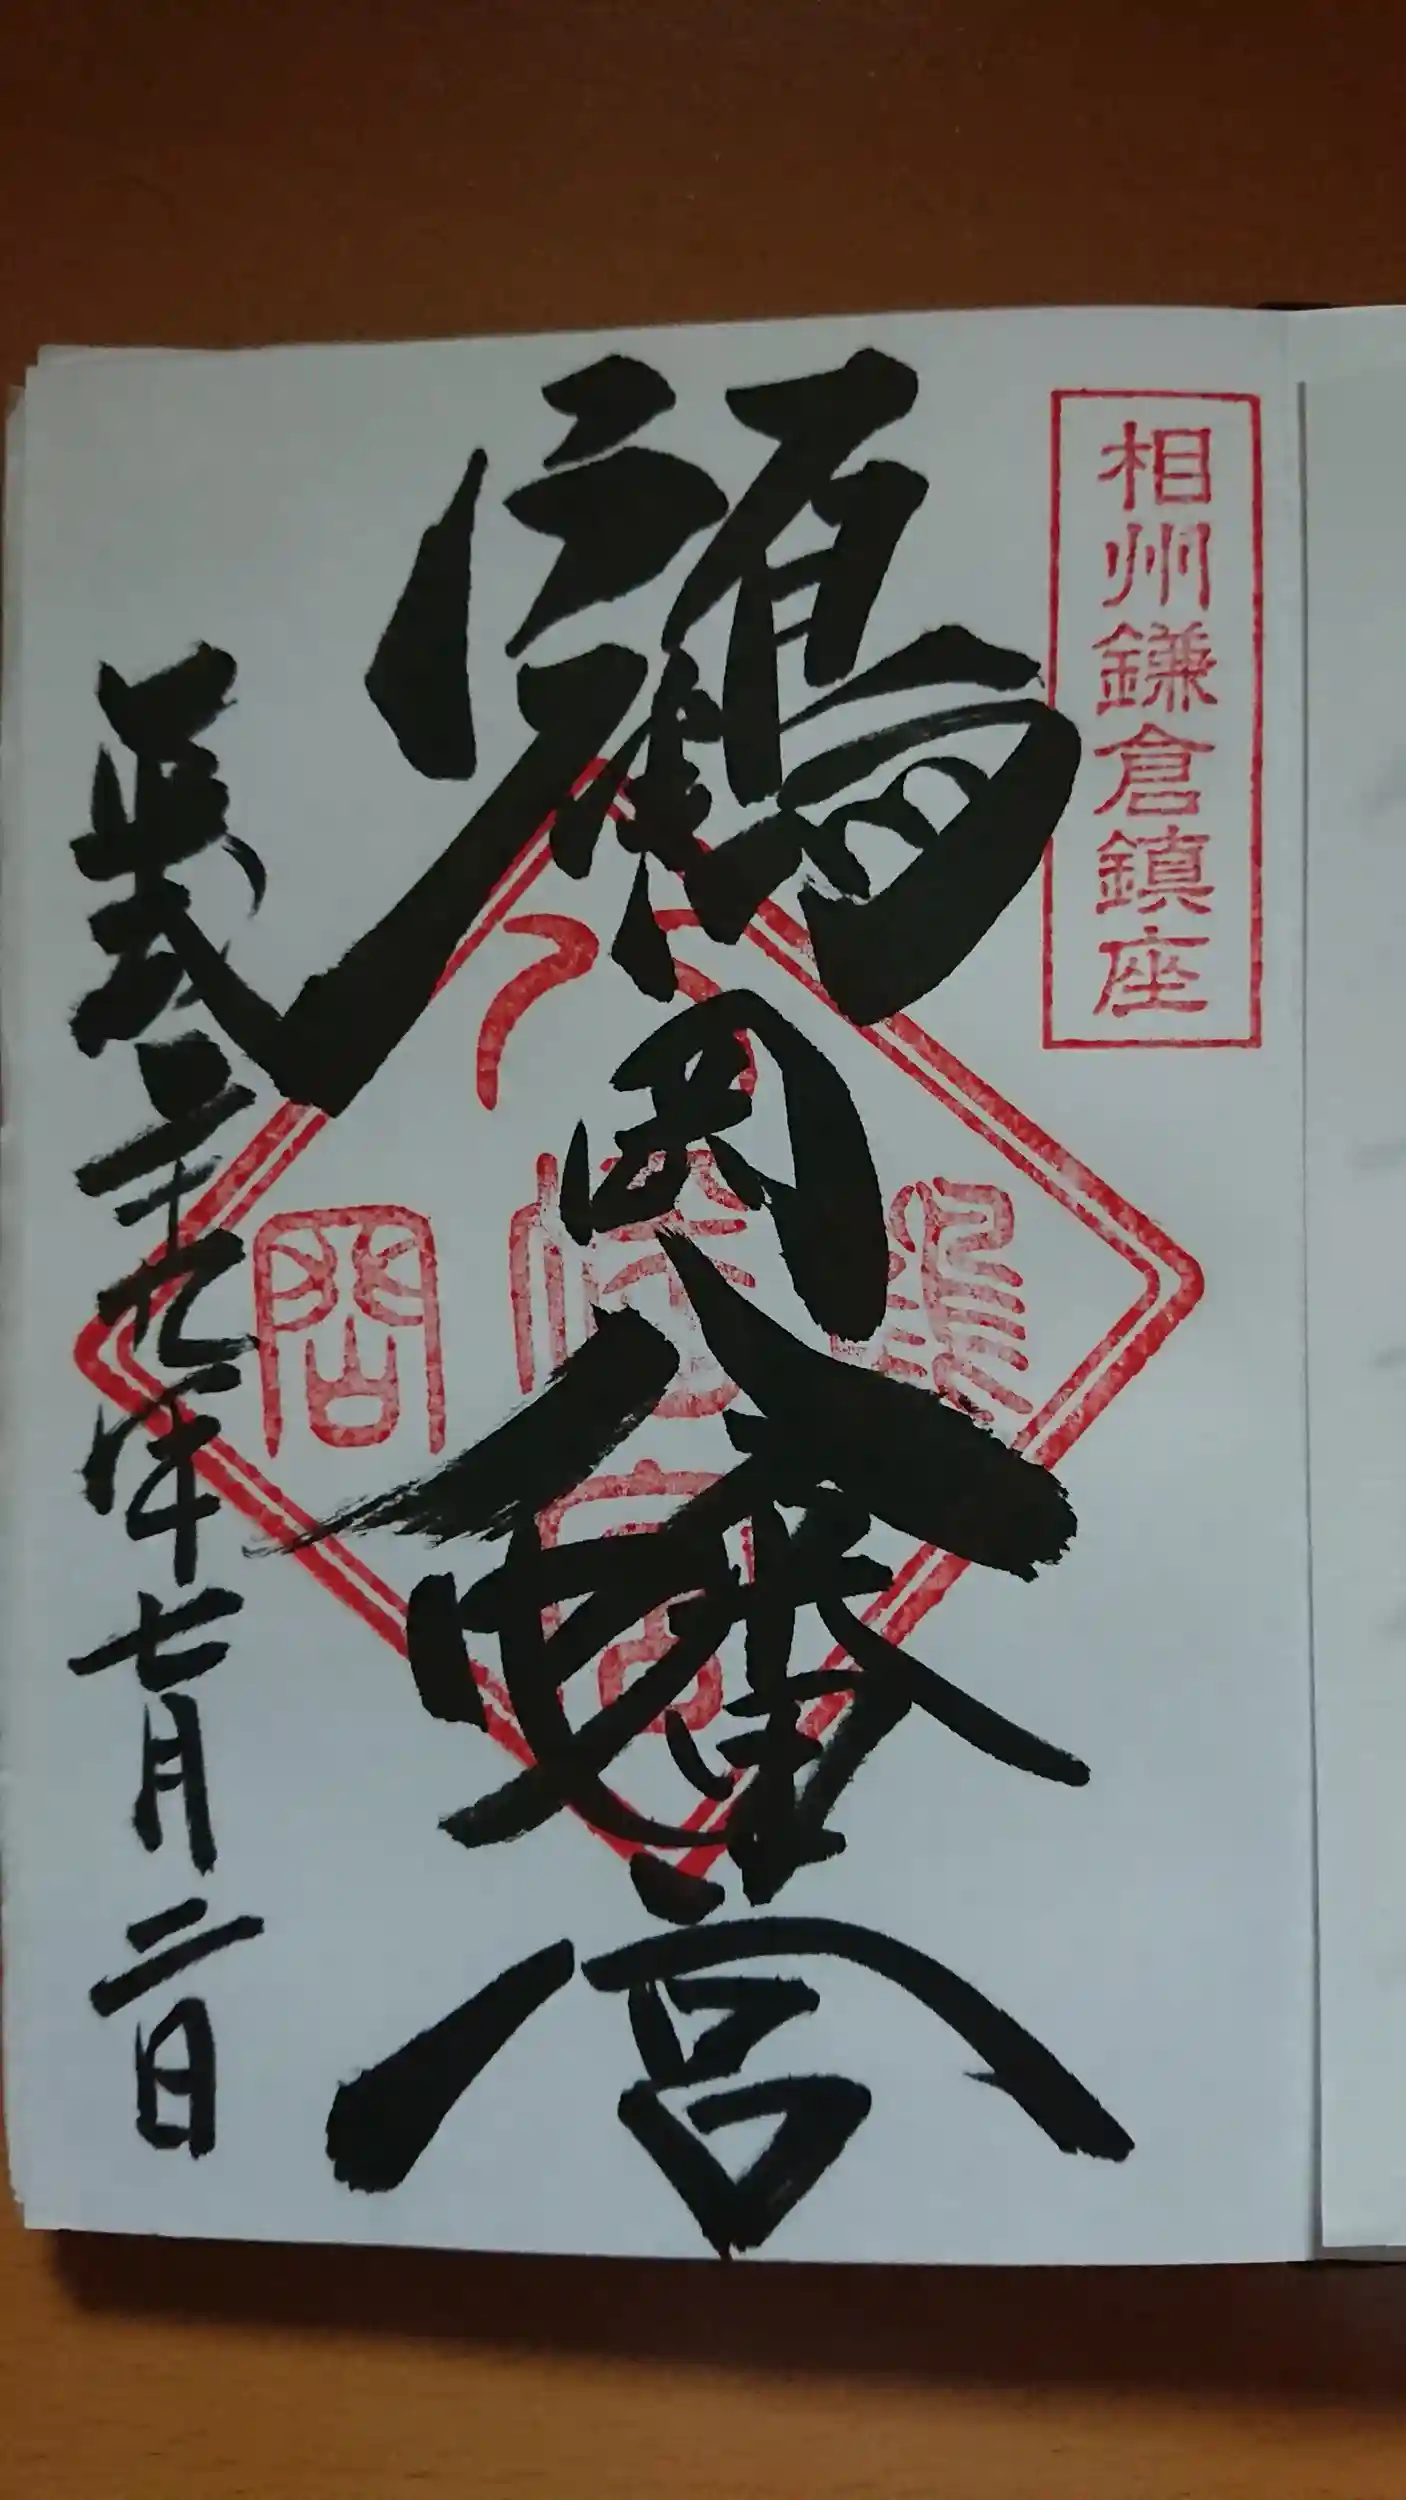 相州鎌倉鎮座
鶴岡八幡宮
鶴
八
幡
宮
岡
平成二十九年七月二日